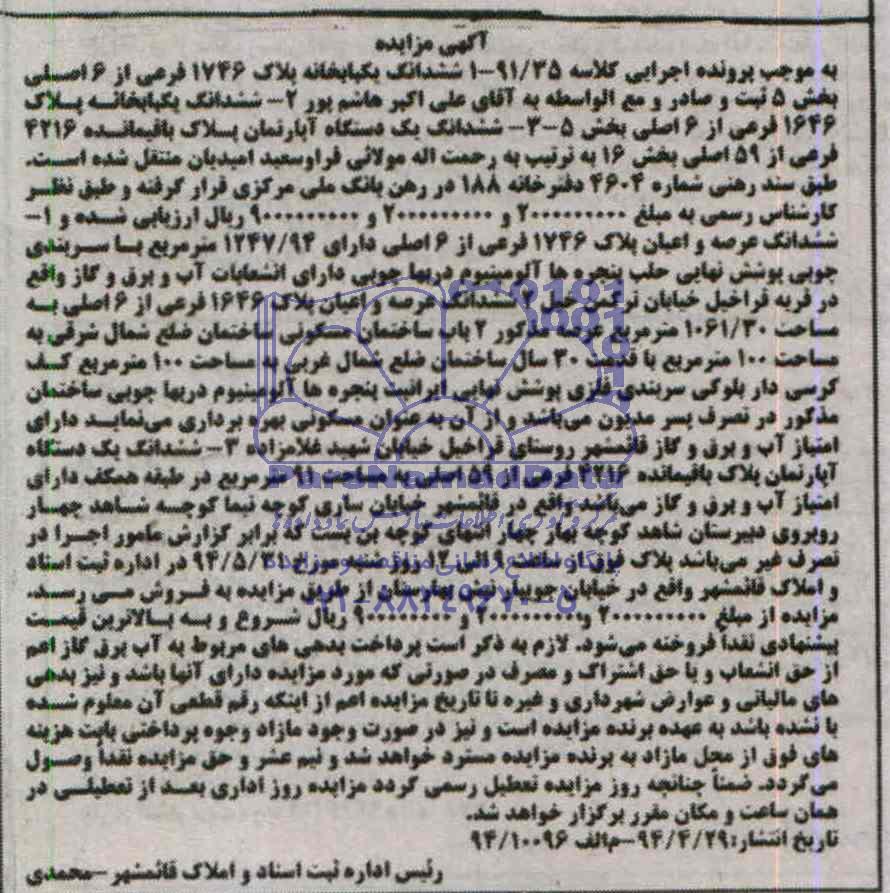 آگهی مزایده
به موجب پرونده اجرایی کلاسه ۹۱/۳۵-۱ ششدانگ یکبابخانه پلاک ۱۷۴۶ فرعی از ۶ اصلی
بخش ۵ ثبت و صادر و مع الواسطه به آقای علی اکبر هاشم پور ۲- ششدانگ یکبابخانه پلاک
۱۶۴۶ فرعی از ۶ اصلی بخش ۵-۳- ششدانگ یک دستگاه آپارتمان پلاک باقیمانده ۴۲۱۶
فرعی از ۵۹ اصلی بخش ۱۶ به ترتیب به رحمت اله مولائی فراوسعید امیدیان منتقل شده است.
طبق سند رهنی شماره ۴۶۰۴ دفترخانه ۱۸۸ در رهن بانک ملی مرکزی قرار گرفته و طبق نظر
کارشناس رسمی به مبلغ ۲۰۰۰۰۰۰۰۰۰ و ۲۰۰۰۰۰۰۰۰۰ و ۹۰۰۰۰۰۰۰۰۰ ریال ارزیابی شده و ۱-
ششدانگ عرصه و اعیان پلاک ۱۷۴۶ فرعی از ۶ اصلی دارای ۱۲۴۷/۹۴ مترمربع با سربندی
چوبی پوشش نهایی حلب پنجره ها آلومینیوم دربها چوبی دارای انشعابات آب و برق و گاز واقع
در قریه قراخیل خیابان نرگس خیل ۲ ششدانگ عرصه و اعیان پلاک ۱۶۴۶ فرعی از ۶ اصلی به
مساحت ۱۰۶۱/۳۰ مترمربع عرصه مذکور ۲ باب ساختمان مسکونی ساختمان ضلع شمال شرقی به
مساحت ۱۰۰ مترمربع با قدمت ۳۰ سال ساختمان ضلع شمال غربی به مساحت ۱۰۰ مترمربع کف
کرسی دار بلوکی سربندی فلزی پوشش نهایی ایرانیت پنجره ها آلومینیوم دربها چوبی ساختمان
مذکور در تصرف پسر مدیون می‌باشد و از آن به عنوان مسکونی بهره برداری می‌نماید دارای
امتیاز آب و برق و گاز قائمشهر روستای قراخیل خیابان شهید غلامزاده ۳- ششدانگ یک دستگاه
آپارتمان پلاک باقیمانده ۴۲۱۶ فرعی از ۵۹ اصلی به مساحت ۹۱ مترمربع در طبقه همکف دارای
امتیاز آب و برق و گاز می‌باشد واقع در قائمشهر خیابان ساری کوچه نیما کوچه شاهد چهار
روبروی دبیرستان شاهد کوچه بهار چهار انتهای کوچه بن بست که برابر گزارش مأمور اجرا در
تصرف غیر می‌باشد پلاک فوق از ساعت ۹ الی ۱۲ روز شنبه مورخ ۹۴/۵/۳۱ در اداره ثبت اسناد
و املاک قائمشهر واقع در خیابان جویبار نبش بهارستان از طریق مزایده به فروش می رسد.
مزایده از مبلغ ۲۰۰۰۰۰۰۰۰۰ و ۲۰۰۰۰۰۰۰۰۰ و ۹۰۰۰۰۰۰۰۰۰ ریال شروع و به بالاترین قیمت
پیشنهادی نقداً فروخته می‌شود. لازم به ذکر است پرداخت بدهی های مربوط به آب برق گاز اعم
از حق انشعاب و یا حق اشتراک و مصرف در صورتی که مورد مزایده دارای آنها باشد و نیز بدهی
های مالیاتی و عوارض شهرداری و غیره تا تاریخ مزایده اعم از اینکه رقم قطعی آن معلوم شده
یا نشده باشد به عهده برنده مزایده است و نیز در صورت وجود مازاد وجوه پرداختی بابت هزینه
های فوق از محل مازاد به برنده مزایده مسترد خواهد شد و نیم عشر و حق مزایده نقداً وصول
می گردد. ضمناً چنانچه روز مزایده تعطیل رسمی گردد مزایده روز اداری بعد از تعطیلی در
همان ساعت و مکان مقرر برگزار خواهد شد.
تاریخ انتشار: ۹۴/۴/۲۹-م‌الف ۹۴/۱۰۰۹۶
رئیس اداره ثبت اسناد و املاک قائمشهر -محمدی
ParsNamadData
پایگاه اطلاع رسانی مناقصه و مزایده
۰۲۱-۸۸۳۴۹۶۷۰-۵